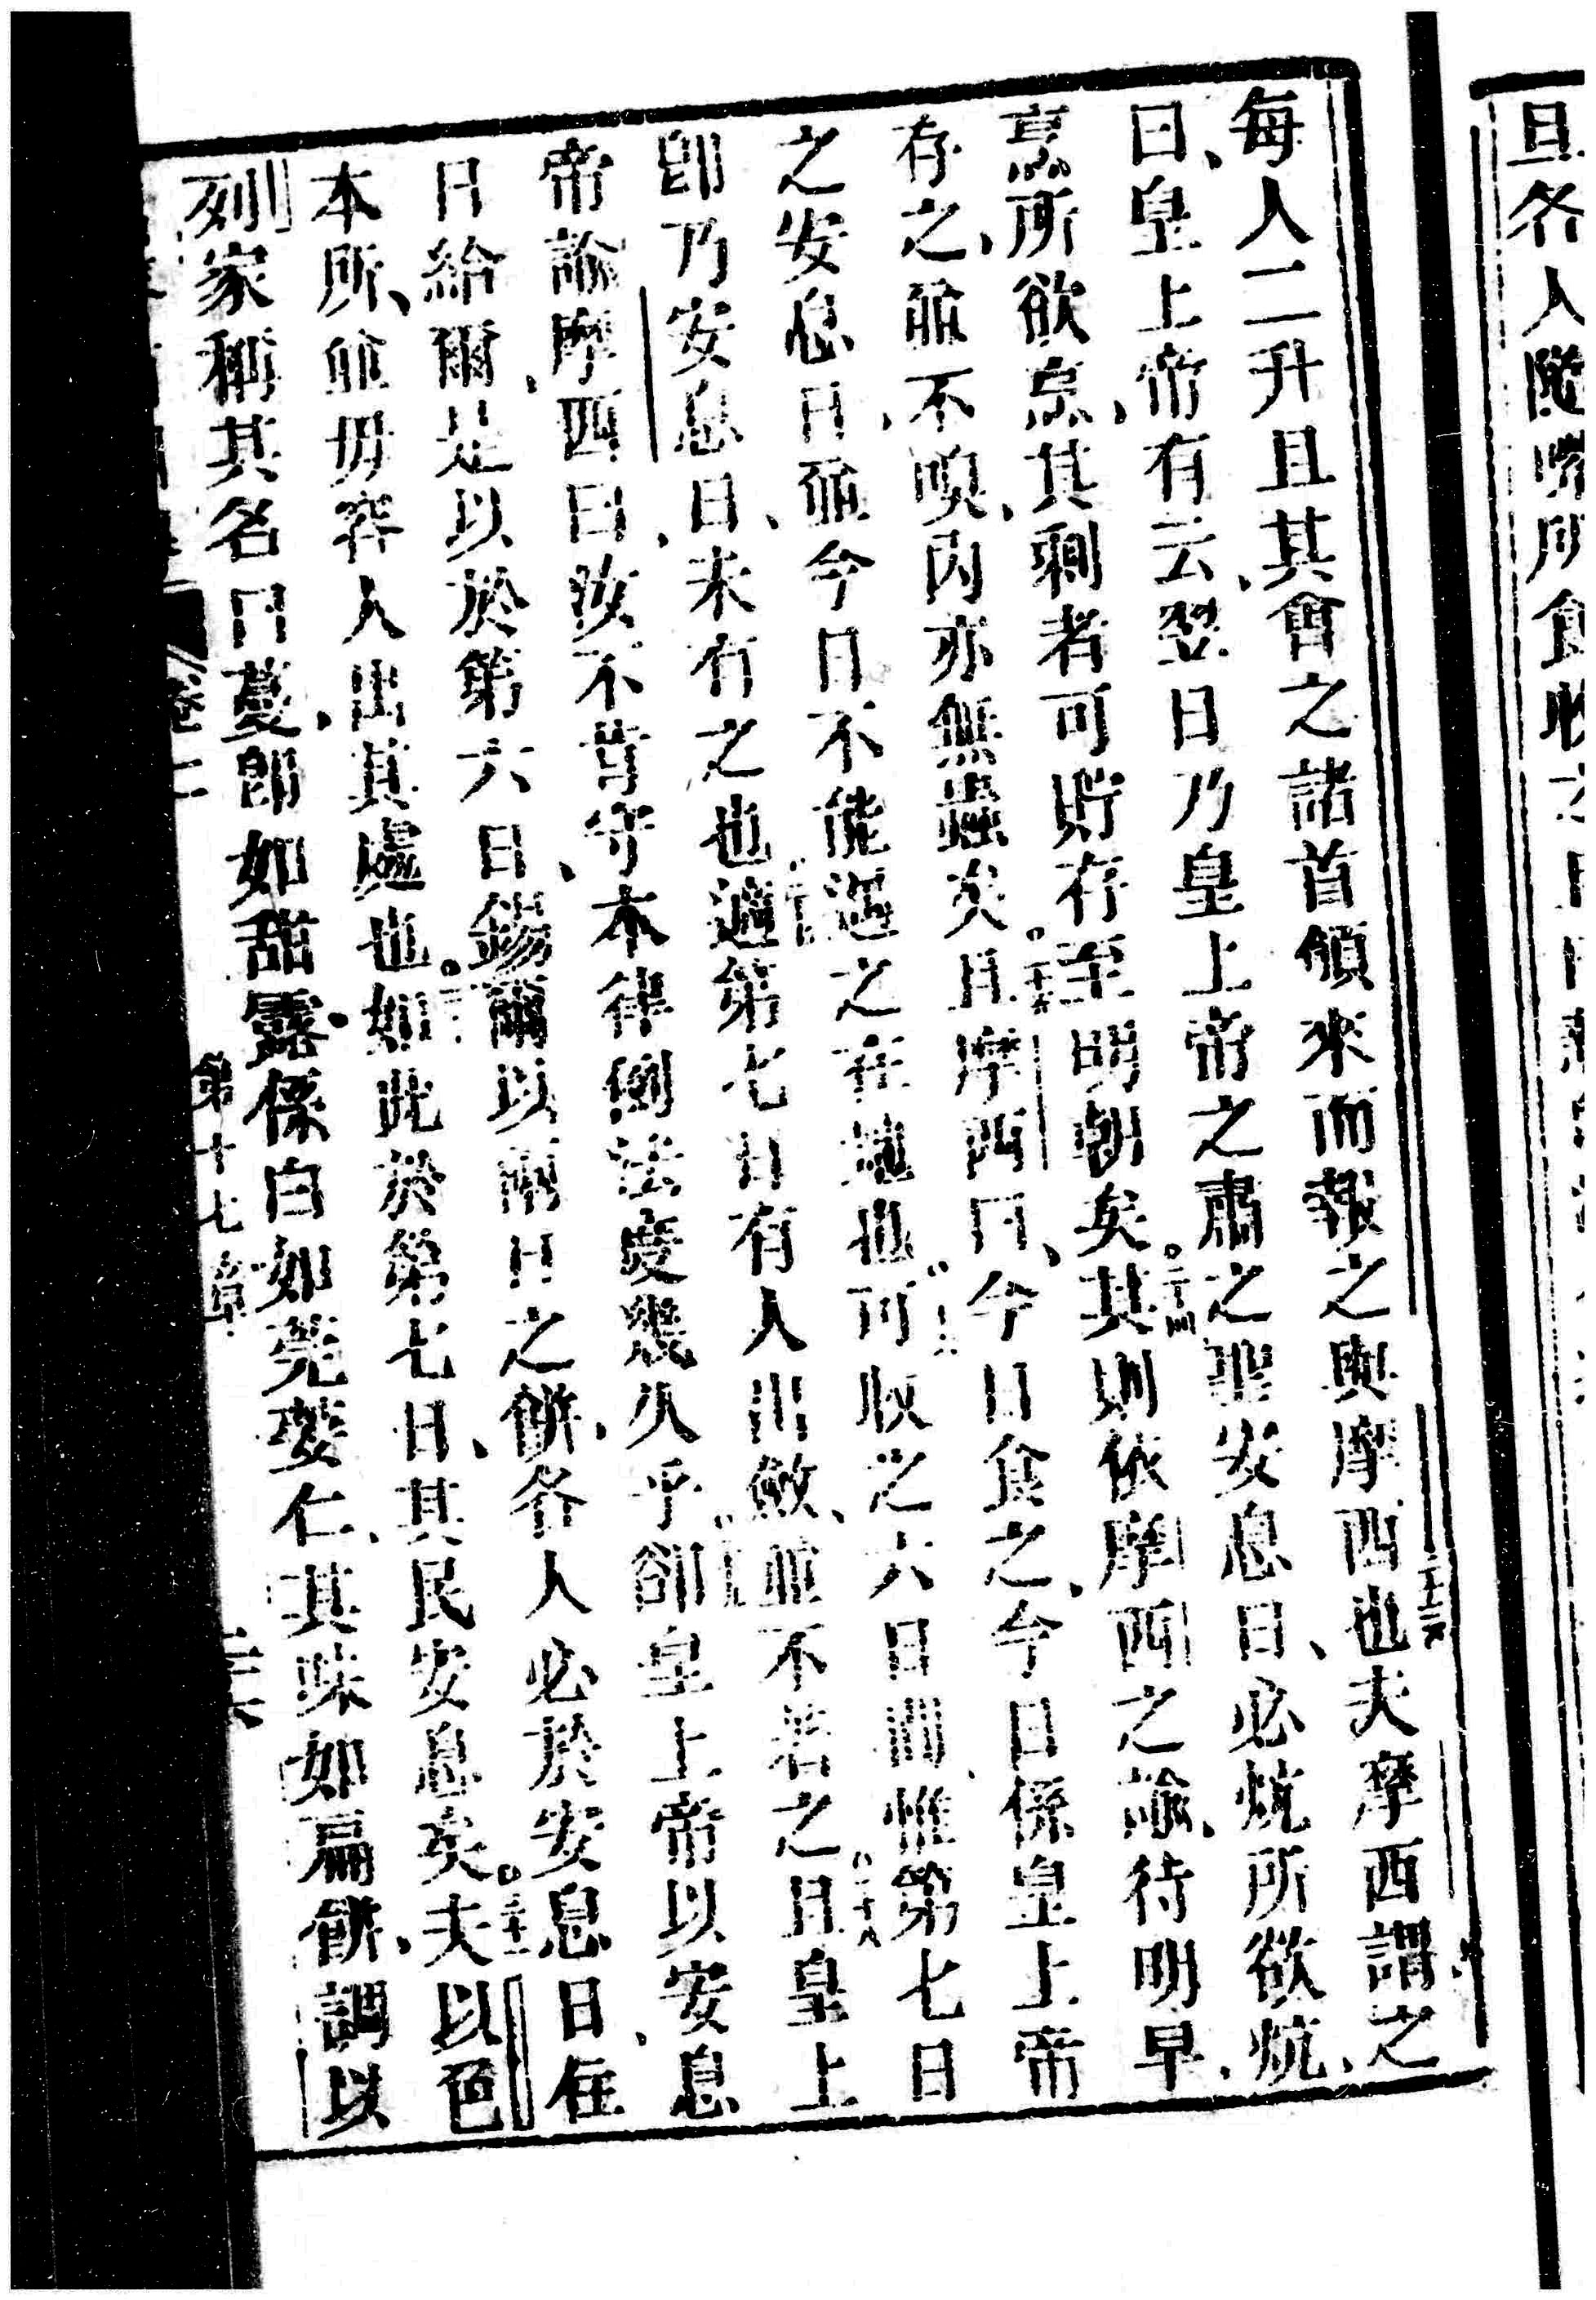 旦各人隨嘴所食收之
每人二升且其會之諸首領來而報之與摩西也二十三夫摩西謂之
曰、皇上帝有云、翌日乃皇上帝之肅之聖安息日、必炕所欲炕、
烹所欲烹、其剩者可貯存至明朝矣。二十四其則依摩西之諭、待明早、
存之、並不嗅、內亦無蟲矣。二十五且摩西曰、今日食之、今日係皇上帝
之安息日、並今日不能遇之在地也。二十六可收之六日間、惟第七日
卽乃安息日、未有之也。二十七適第七日有人出斂、並不若之。二十八且皇上
帝諭摩西曰、汝不肯守本律例法度幾久乎。二十九卻皇上帝以安息
日給爾、是以於第六日、錫爾以兩日之餅、各人必於安息日、在
本所、並毋容人出其處也。三十如此於第七日、其民安息矣。三十一夫以色
列家稱其名曰蔓、卽如甜露、係白如莞荽仁、其味如扁餅、調以
卷二 第十七章